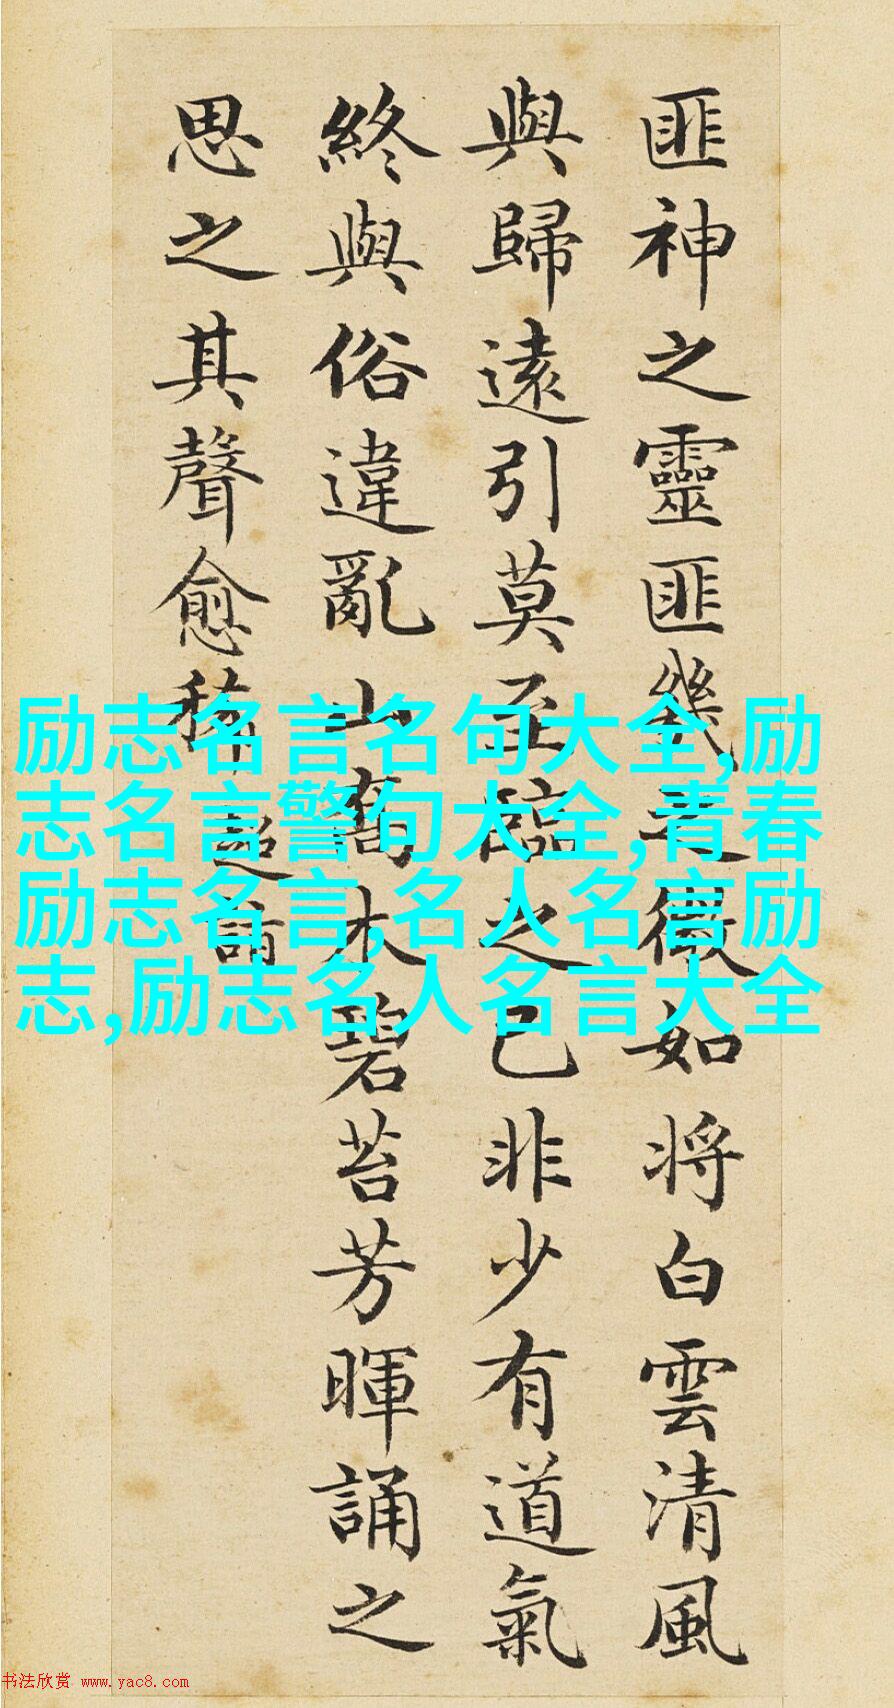 匪神之靈匪幾之微如将白雲清風
與歸遠引莫至臨之已非少有道氣
終與俗違亂山喬木碧苔芳暉誦之
思之其聲愈稀
超詣
励志名言名句大全,励
志名言警句大全,青春
励志名言,名人名言励
志,励志名人名言大全
书法欣赏 www.yac8.com